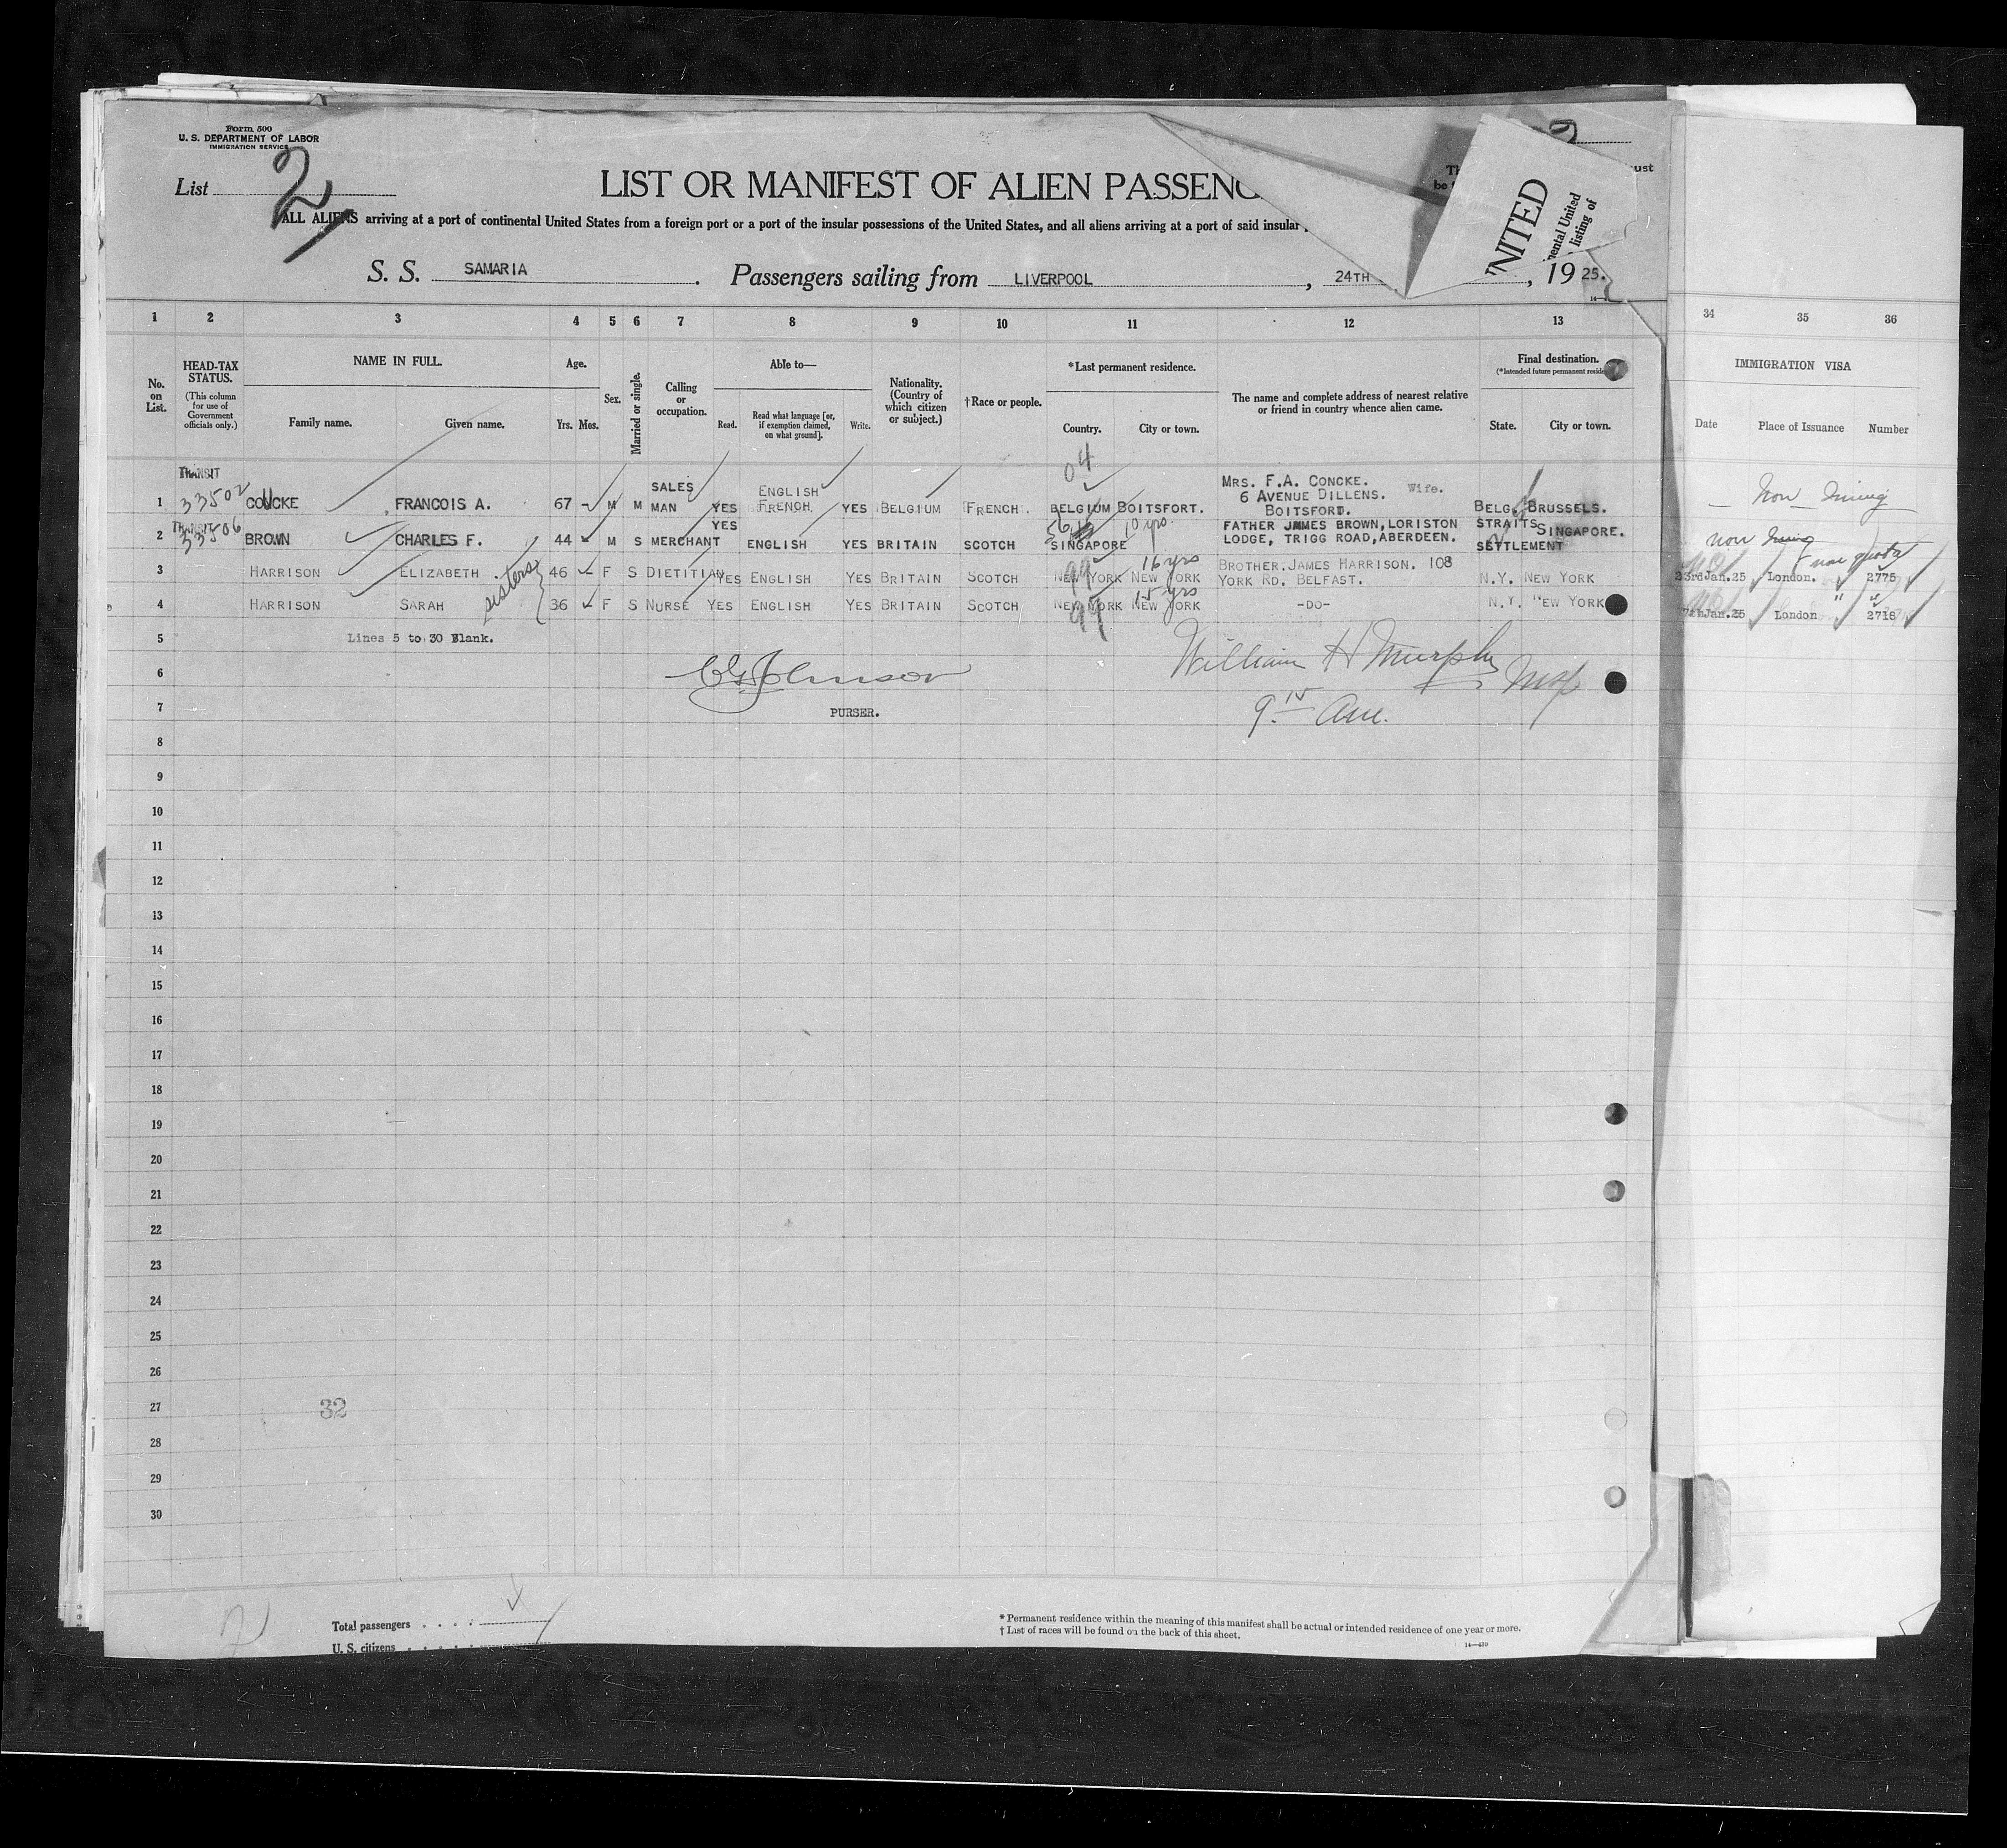 Form 500
U. S. DEPARTMENT OF LABOR
IMMIGRATION SERVICE
List 2
LIST OR MANIFEST OF ALIEN PASSENG
ALL ALIENS arriving at a port of continental United States from a foreign port or a port of the insular possessions of the United States, and all aliens arriving at a port of said insular
NITED
nental United
listing of
ust
S. S. SAMARIA. Passengers sailing from LIVERPOOL, 24TH, 19 25.
1 2 3 4 5 6 7 8 9 10 11 12 13 34 35 36
No. on List.
HEAD-TAX STATUS.
(This column for use of Government officials only.)
NAME IN FULL.
Family name. Given name.
Age.
Yrs. Mos.
Sex.
Married or single.
Calling or occupation.
Able to—
Read. Read what language [or, if exemption claimed, on what ground]. Write.
Nationality. (Country of which citizen or subject.)
†Race or people.
*Last permanent residence.
Country. City or town.
The name and complete address of nearest relative or friend in country whence alien came.
Final destination.
(*Intended future permanent resid
State. City or town.
IMMIGRATION VISA
Date Place of Issuance Number
04
TRANSIT
1 33502 CONCKE FRANCOIS A. 67 - M M SALES MAN YES ENGLISH FRENCH YES BELGIUM FRENCH. BELGIUM BOITSFORT. MRS. F.A. CONCKE. Wife. 6 AVENUE DILLENS. BOITSFORT. BELG. BRUSSELS.
TRANSIT
2 33506 BROWN CHARLES F. 44 - M S MERCHANT YES ENGLISH YES BRITAIN SCOTCH SINGAPORE 10 yrs. FATHER JAMES BROWN, LORISTON LODGE, TRIGG ROAD, ABERDEEN. STRAITS SETTLEMENT SINGAPORE.
3 HARRISON ELIZABETH 46 - F S DIETITIAN YES ENGLISH YES BRITAIN SCOTCH NEW YORK NEW YORK 99 16 yrs BROTHER. JAMES HARRISON. 108 YORK RD. BELFAST. N.Y. NEW YORK 23rd Jan.25 London. non quota 2775
sisters
4 HARRISON SARAH 36 - F S NURSE YES ENGLISH YES BRITAIN SCOTCH NEW YORK NEW YORK 99 15 yrs -DO- N.Y. NEW YORK Jan.25 London " " 2718
5 Lines 5 to 30 Blank.
6 William H Murphy
7 PURSER.
8
9
10
11
12
13
14
15
16
17
18
19
20
21
22
23
24
25
26
27 32
28
29
30
Total passengers . . . .
U. S. citizens . . . .
* Permanent residence within the meaning of this manifest shall be actual or intended residence of one year or more.
† List of races will be found on the back of this sheet.